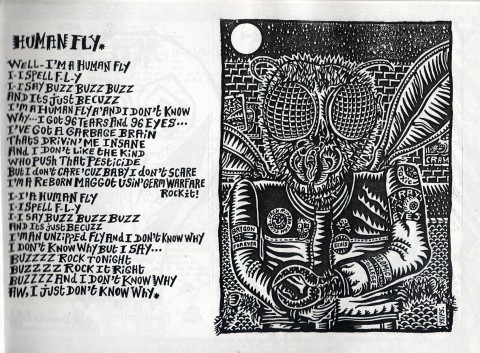 HUMAN FLY.
WELL-I'M A HUMAN FLY
I-I SPELL F-L-Y
I-I SAY BUZZ BUZZ BUZZ
AND ITS JUST BECUZZ
I'M A HUMAN FLY AND I DON'T KNOW
WHY...I GOT 96 TEARS AND 96 EYES...
I'VE GOT A GARBAGE BRAIN
THATS DRIVIN' ME INSANE
AND I DON'T LIKE THE KIND
WHO PUSH THAT PESTICIDE
BUT I DON'T CARE 'CUZ BABY I DON'T SCARE
I'M A REBORN MAGGOT USIN' GERM WARFARE
ROCK IT!
I-I'A HUMAN FLY
I-I SPELL F-L-Y
I-I SAY BUZZ BUZZ BUZZ
AND ITS JUST BECUZZ
I'M AN UNZIPPED FLY AND I DON'T KNOW WHY
I DON'T KNOW WHY BUT I SAY...
BUZZZZ ROCK TONIGHT
BUZZZZ ROCK IT RIGHT
BUZZZZ AND I DON'T KNOW WHY
AW, I JUST DON'T KNOW WHY.
CRAM
FOREVER